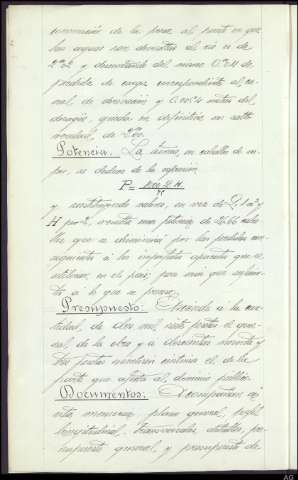 coronación de la presa al punto en que
las aguas son devueltas al río es de
y descontando del mismo
pérdida de carga correspondiente al ca-
nal de derivación y metros del
desagüe, queda en definitiva un salto
Potencia. La teórica, en caballos de va-
por, se deduce de la expresión
P =
y sustituyendo valores, en vez de Q, 1 m³ y
H por 2, resulta una potencia de 26,66 caba-
llos que se disminuirá por las pérdidas con-
siguientes á los importantes aparatos que se
utilicen, en el país, para mis que
á lo que se
Presupuesto. Asciende á la can-
tidad, de dos mil, siete pesetas el gene-
ral, de la obra y a doscientas noventa y
tres pesetas céntimos el de la
parte que afecta al dominio público.
Documentos: Acompañan á
esta memoria: plano general, perfil
longitudinal, transversales, detalles, pre-
supuesto general, y presupuesto de
AG